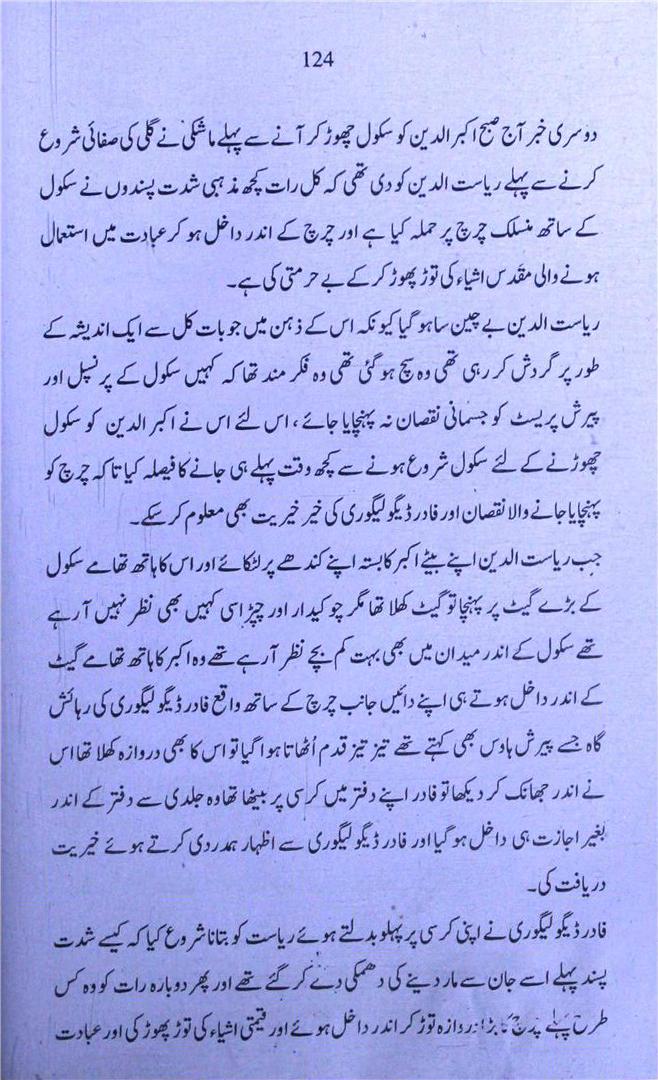 124
دوسری خبر آج صبح اکبر الدین کو سکول چھوڑ کر آنے سے پہلے ماشکی نے گلی کی صفائی شروع
کرنے سے پہلے ریاست الدین کو دی تھی کہ کل رات کچھ مذہبی شدت پسندوں نے سکول
کے ساتھ منسلک چرچ پر حملہ کیا ہے اور چرچ کے اندر داخل ہو کر عبادت میں استعمال
ہونے والی مقدس اشیاء کی توڑ پھوڑ کر کے بے حرمتی کی ہے۔
ریاست الدین بے چین سا ہو گیا کیونکہ اس کے ذہن میں جو بات کل سے ایک اندیشہ کے
طور پر گردش کر رہی تھی وہ سچ ہو گئی تھی وہ فکر مند تھا کہ کہیں سکول کے پرنسپل اور
پیرش پریسٹ کو جسمانی نقصان نہ پہنچایا جائے، اس لئے اس نے اکبر الدین کو سکول
چھوڑنے کے لئے سکول شروع ہونے سے کچھ وقت پہلے ہی جانے کا فیصلہ کیا تا کہ چرچ کو
پہنچایا جانے والا نقصان اور فادر ڈیگو لیگوری کی خیر خیریت بھی معلوم کر سکے۔
جب ریاست الدین اپنے بیٹے اکبر کا بستہ اپنے کندھے پر لٹکائے اور اس کا ہاتھ تھامے سکول
کے بڑے گیٹ پر پہنچا تو گیٹ کھلا تھا مگر چوکیدار اور چپڑاسی کہیں بھی نظر نہیں آ رہے
تھے سکول کے اندر میدان میں بھی بہت کم بچے نظر آرہے تھے وہ اکبر کا ہاتھ تھامے گیٹ
کے اندر داخل ہوتے ہی اپنے دائیں جانب چرچ کے ساتھ واقع فادر ڈیگو لیگوری کی رہائش
گاہ جسے پیرش ہاوس بھی کہتے تھے تیز تیز قدم اُٹھاتا ہوا گیا تو اس کا بھی دروازہ کھلا تھا اس
نے اندر جھانک کر دیکھا تو فادر اپنے دفتر میں کرسی پر بیٹھا تھا وہ جلدی سے دفتر کے اندر
بغیر اجازت ہی داخل ہو گیا اور فادر ڈیگو لیگوری سے اظہار ہمدردی کرتے ہوئے خیریت
دریافت کی۔
فادر ڈیگو لیگوری نے اپنی کرسی پر پہلو بدلتے ہوئے ریاست کو بتانا شروع کیا کہ کیسے شدت
پسند پہلے اسے جان سے مار دینے کی دھمکی دے کر گئے تھے اور پھر دوبارہ رات کو وہ کس
طرح پہلے چرچ کا بڑا دروازہ توڑ کر اندر داخل ہوئے اور قیمتی اشیاء کی توڑ پھوڑ کی اور عبادت